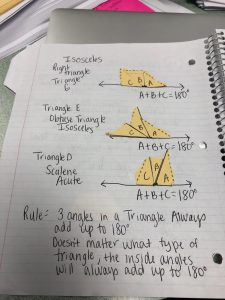 Isosceles
Right
triangle
Triangle
G
C B A
A+B+C=180°
Triangle E
Obtuse Triangle
Isosceles
C B A
A+B+C=180°
Triangle D
Scalene
Acute
C B A
A+B+C=180°
Rule: 3 angles in a Triangle Always
add up to 180°
Doesn't matter what type of
triangle, the inside angles
will always add up to 180°